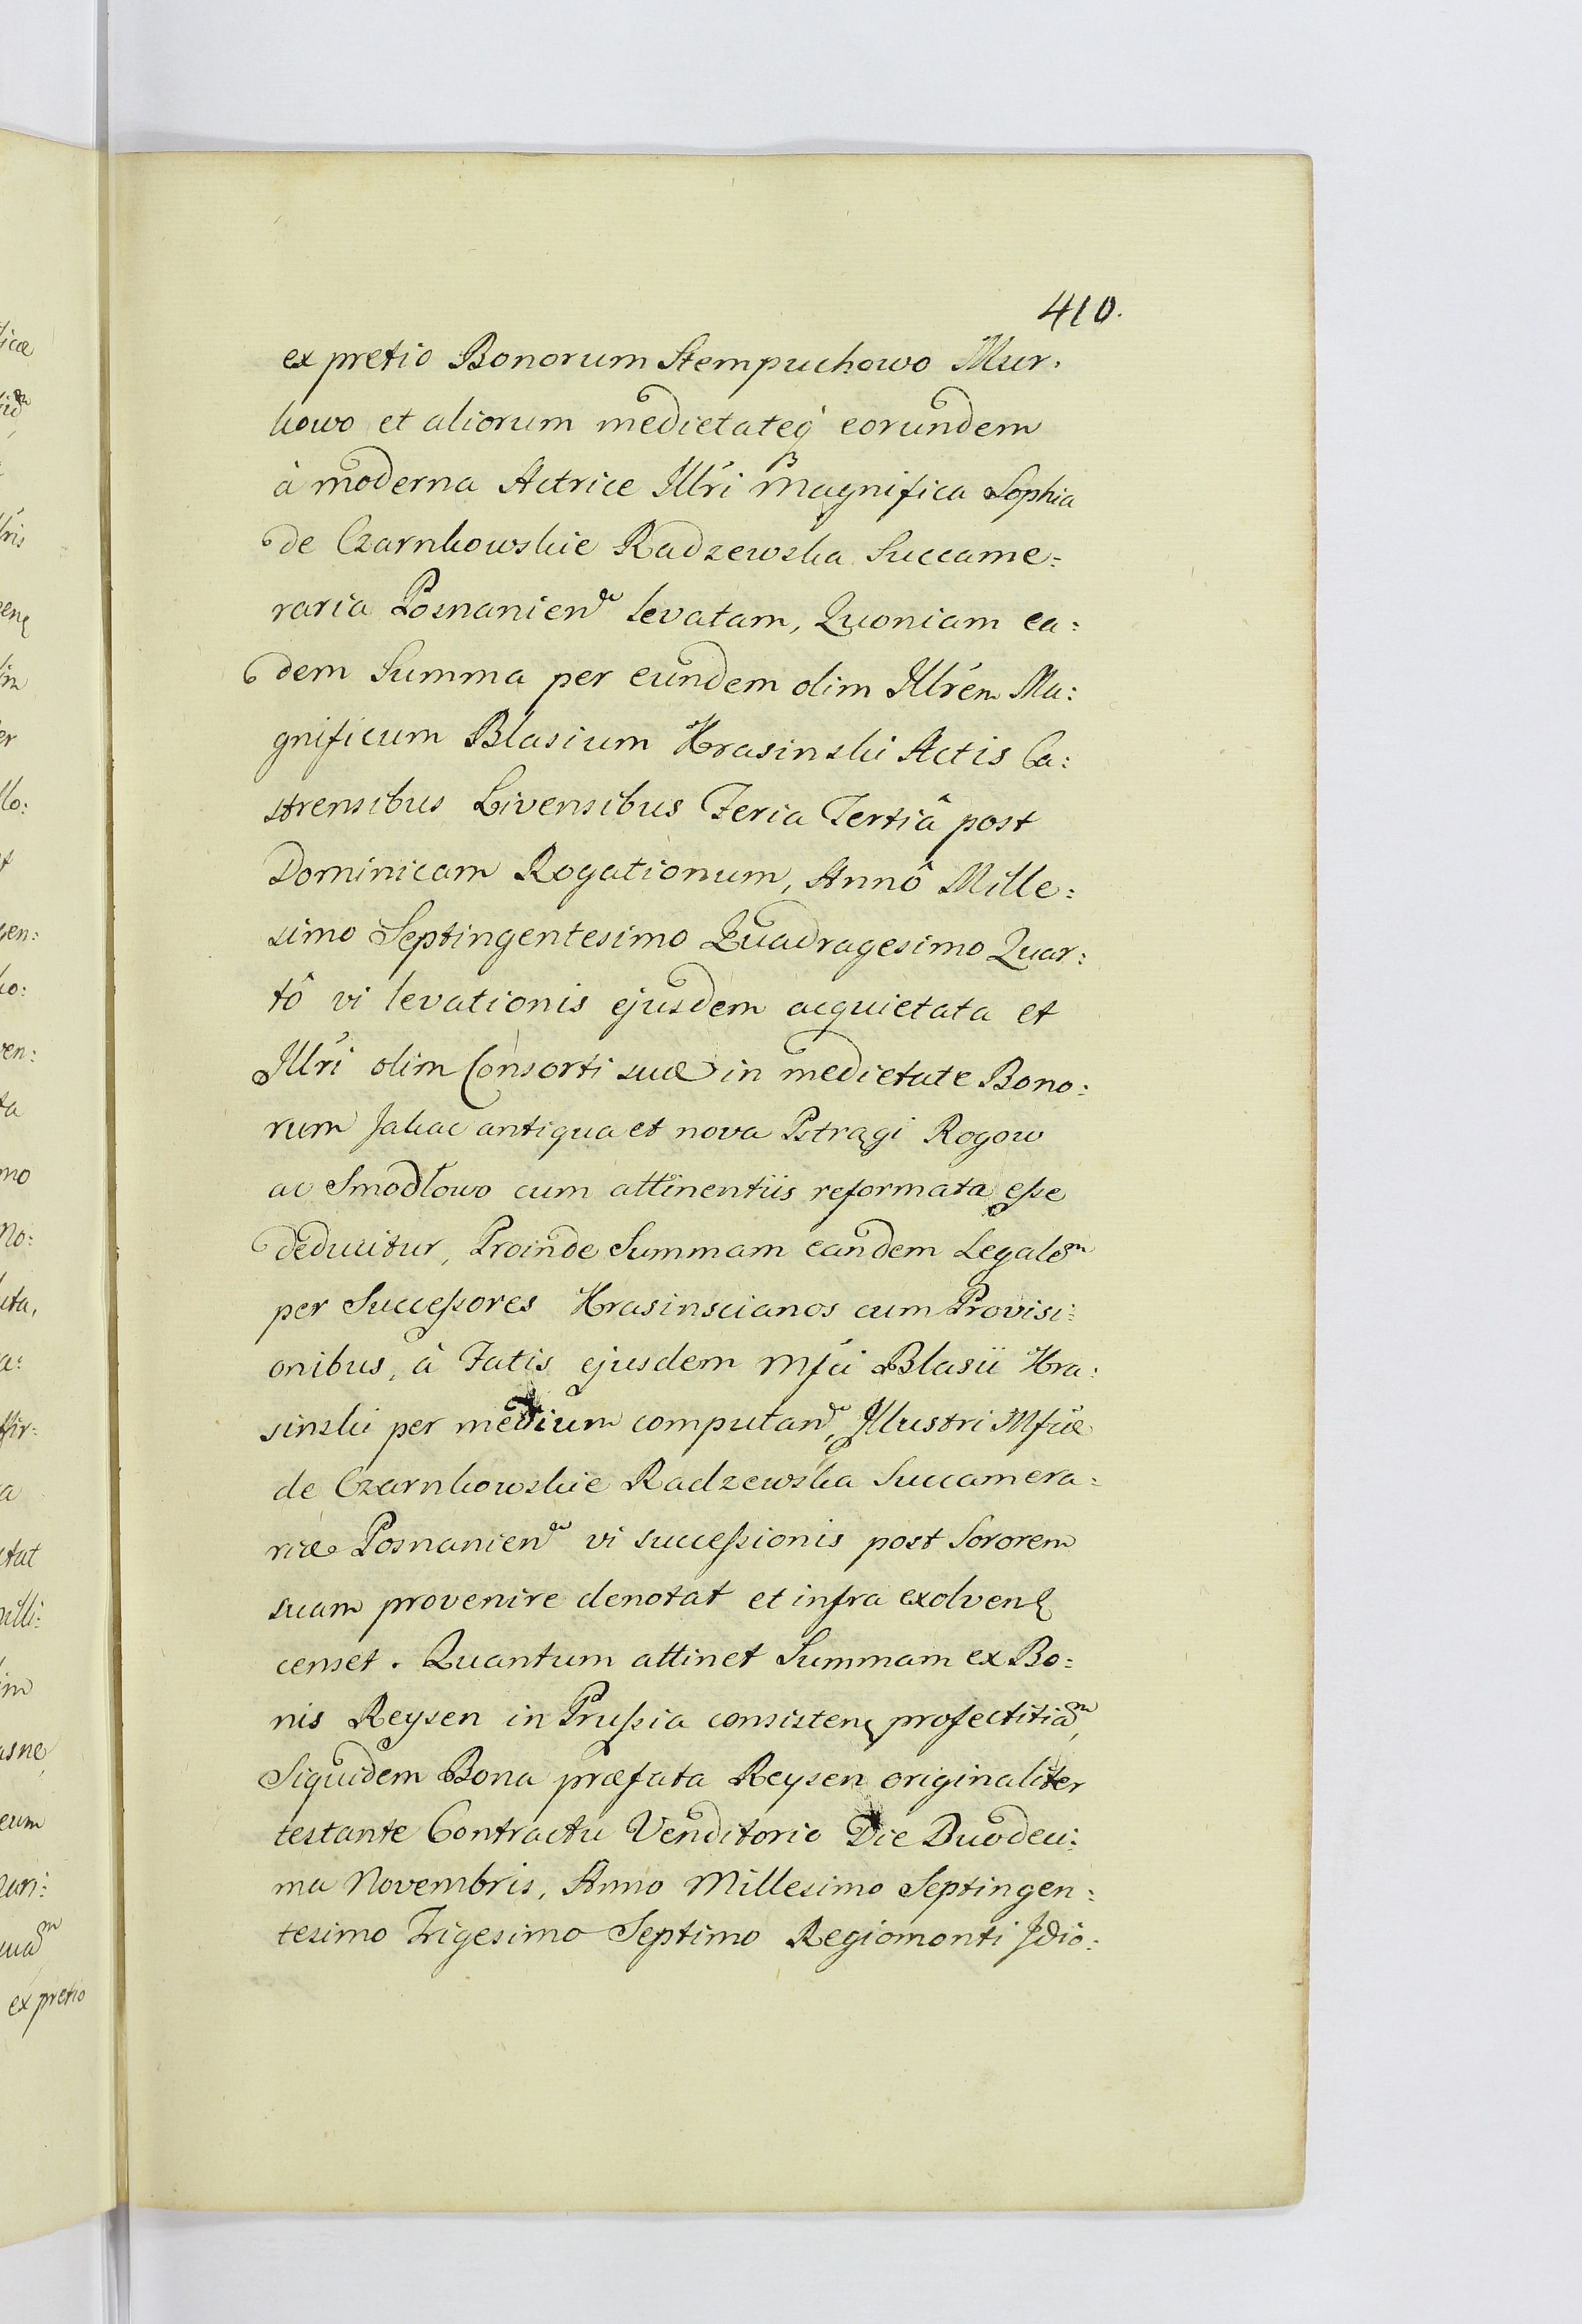 410.
ex pretio Bonorum Stempuchowo Mur:
kowo et aliorum medietateq̃ eorundem
à moderna Actrice Illri Magnifica Sophia
de Czarnkowskie Radzewska Succame:
raria Posnanien levatam, Quoniam ea:
dem Summa per eundem olim Illrem Ma:
gnificum Blasium Krasinski Actis Ca:
strensibus Livensibus Feria Tertiâ post
Dominicam Rogationum, Annô Mille:
simo Septingentesimo Quadragesimo Quar:
tô vi levationis ejusdem acquietata et
Illri olim Consorti suæ in medietate Bono:
rum Jakac antiqua et nova Pstrągi Rogow
ac Smodłowo cum attinentiis reformata eſse
deducitur, Proinde Summam eandem Legalem
per Succeſsores Krasinscianos cum Provisi:
onibus, à Fatis ejusdem Mfci Blasii Kra:
sinski per medium computan, Illustri Mfcæ
de Czarnkowskie Radzewska Succamera:
riæ Posnanien vi succeſsionis post Sororem
suam provenire denotat et infra exolven
censet. Quantum attinet Summam ex Bo:
nis Reysen in Pruſsia consisten profectitiam,
Siquidem Bona præfata Reysen originaliter
testante Contractu Venditorio Die Duodeci:
ma Novembris, Anno Millesimo Septingen:
tesimo Trigesimo Septimo Regiomonti Jdio:
ex pretio